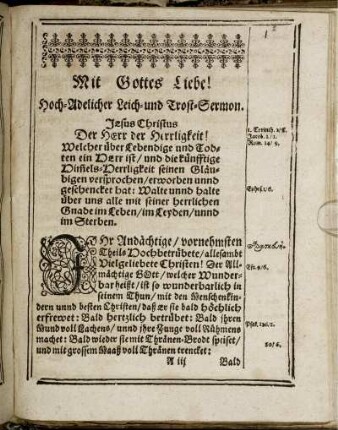 Mit Gottes Liebe!
Hoch-Adelicher Leich-und Trost-Sermon.
Jesus Christus
Der HErr der Herrligkeit!
Welcher über Lebendige und Tod-
ten ein HErr ist/ und die künfftige
Himels-Herrligkeit seinen Gläu-
bigen versprochen/erworben unnd
geschencket hat: Walte unnd halte
über uns alle mit seiner herrlichen
Gnade im Leben/ im Leyden/unnd
im Sterben.
IHr Andächtige/ vornehmsten
Theils Hochbetrübete/allesambt
Vielgeliebete Christen! Der All-
mächtige GOtt/ welcher Wunder-
bar heißt/ ist so wunderbarlich in
seinem Thun/ mit den Menschenkin-
dern unnd besten Christen/ daß er sie bald höchlich
erfrewet: Bald hertzlich betrübet: Bald jhren
Mund voll Lachens/ unnd jhre Zunge voll Rühmens
machet: Bald wieder sie mit Thränen-Brodt speiset/
und mit grossem Maaß voll Thränen trencket:
A iij Bald
Jacob. 2/1.
Rom. 14/9.
Esa. 9/6.
Psal. 126/2.
80/6.